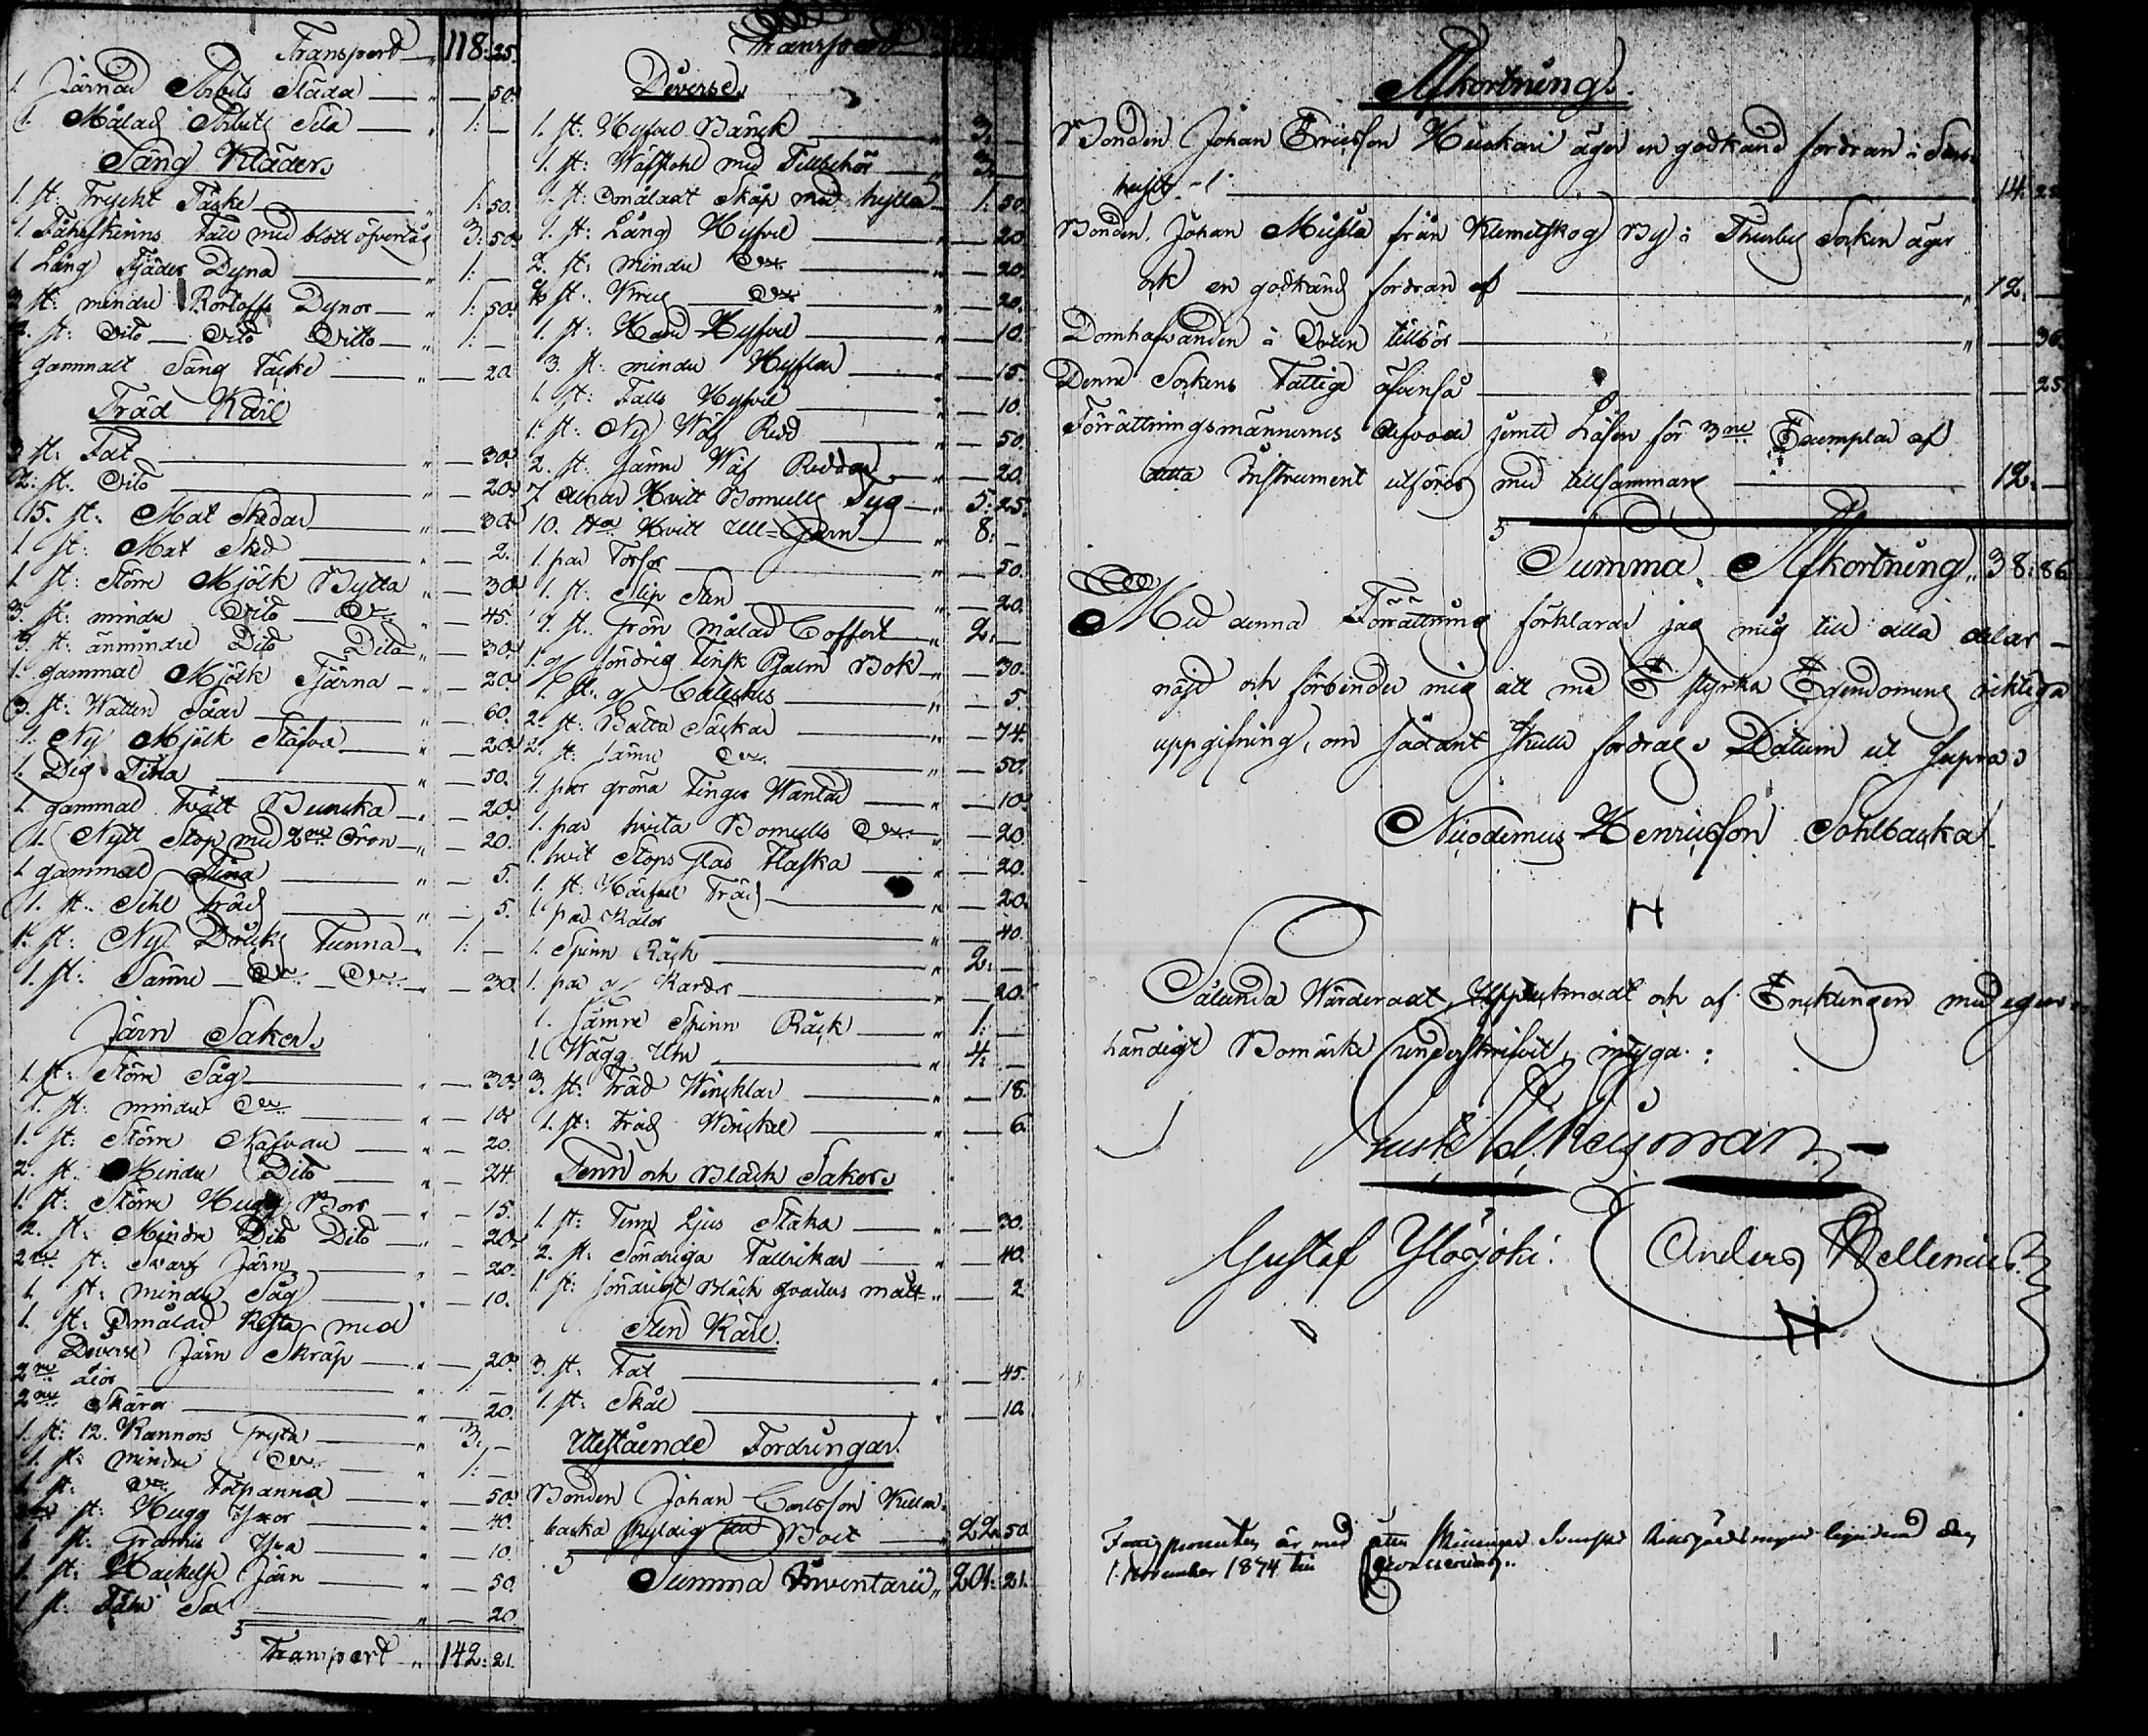 Transport 118: 25.
1. Järnad Arbets Släda 50.
1. Målad Arbets Sela 1: —
Säng Kläder.
1. st: Tryckt Täcke 1: 50.
1 Fåhrskinns Fäll med blått öfvertåg 3: 50.
1 Lång Fjäder Dyna 1: —
3 st: mindre Dynor 1: 50.
2. st: Dito Dito Ditto 1: —
gammalt Säng täcke 20.
Träd Käril
3 st. Fat 30.
2. st. Dito 20.
15. st: Mat Skedar 30.
1 st: Mat Sked 2.
1 st: Större Mjölk Bytta 30.
3. st: mindre Dito Do 45.
3. st. änmindre Dito Dito 30.
1. gammal Mjölk Tjärna 20.
3. st: Watten Såar 60.
1. Ny Mjölk Stäfva 20.
1. Deg Tina 50.
1 gammal Tvätt Buncka 20.
1. Nytt Stop med 2ne Öron 20.
1 gammal Tina 5.
1. st. Sihl träd 5.
1. st: Ny Dricks Tunna 1: —
1. st: Sämre Do Do 30.
Järn Saker.
1. st: Större Såg 30.
1. st: mindre Do 10.
1. st: Större Nafvare 20.
2. st. Mindre Dito 24.
1. st: Större Hugg Bor 15.
2. st: Mindre Dito Dito 20.
2ne st: Svarf Järn 20.
1 st: mindre Såg 10.
1. st: Omålad Kista med
Diverse Järn Skräp 20.
2ne Lior 1: —
2ne Skäror 20.
1. st: 12. Kannors Gryta 3: —
1. st: mindre Do 1: —
1 st: Do Fotpanna 50.
st: Hugg Yxor 40.
1 st: Yxa 10.
1. st: Järn 50.
1 st: Fåhr Sax 20.
Transport 142: 21.
Transport
Diverse.
1. st: Hyfvel Bänck 3: —
1. st: Wäfstohl med Tillbehör 3: —
1. st: Omåladt Skåp med hylla 1: 50.
1. st: Lång Hyfvel 20.
2. st: mindre Do 20.
st: Krus Do 20.
1. st: Hand Hyfvel 10.
3. st: mindre Hyflar 15.
1 st: Falls Hyfvel 10.
1. st: Ny Wäf Redd 50.
2. st. Sämre Wäf Reddar 20.
7. alnar Hvitt Bomulls Tyg 5: 25.
10. Hvitt Ull-Garn 8: —
1. par 50.
1. st: Slip Sten 20.
1. st. Grön målad Coffert 2: —
1. g/ söndrig Finsk Psalm Bok 30.
1. st: g/ Cateches 5.
2. st: Bättre Säckar 74.
2. st: Sämre Do 50.
1. par gröna Finger Wantar 10.
1. par hvita Bomulls Do 20.
1. hvit Stops Glas Flaska 20.
1. st: Härfvel Träd 20.
1. par 40.
1. Spinn Råck 2: —
1. par g/ Kardor 20.
1. Sämre Spinn Råck 1: —
1. Wägg Uhr 4: —
3. st: Träd Wincklar 18.
1. st: träd Winckel 6.
Tenn och Bläck Saker.
1. st: Tenn Ljus Staka 30.
2. st: Söndriga Tallrikar 40.
1. st: söndrigt Bläck qvarters mått 2.
Sten Käril.
3. st: Fat 45.
1. st: Skål 10.
Utestående Fordringar.
Bonden Johan Carlsson
backa skyldig Bolt 22: 50.
Summa Inventarii 201: 21.
Afkortning.
Bonden Johan Ericsson äger en godkänd fordran i
14:
Bonden Johan från Klemetskog By i Thusby Socken äger
ock en godkänd fordran af 12. —
Domhafvanden å Orten tillkör 36.
Denne Sockens Fattige äfvenså 25.
Förrättningsmännernes Arfvode jemte Lösen för 3ne Exemplar af
detta Instrument utföres med tillsammans 12. —
Summa Afkortning 38: 86.
Med denna Förrättning förklarar jag mig till alla delar
nöjd och förbinder mig att med Ed styrka Egendomens riktiga
uppgifning, om sådant skulle fordras. Datum ut supra.
Nicodemus Henricsson Sohlbacka
Sålunda Wärderadt, Uppteknadt och af Encklingen med egen-
händigt Bomärke underskrifvit, intyga:
Gustaf Ylösjoki. Anders Wellenius.
är med Svenska
1. November 1874